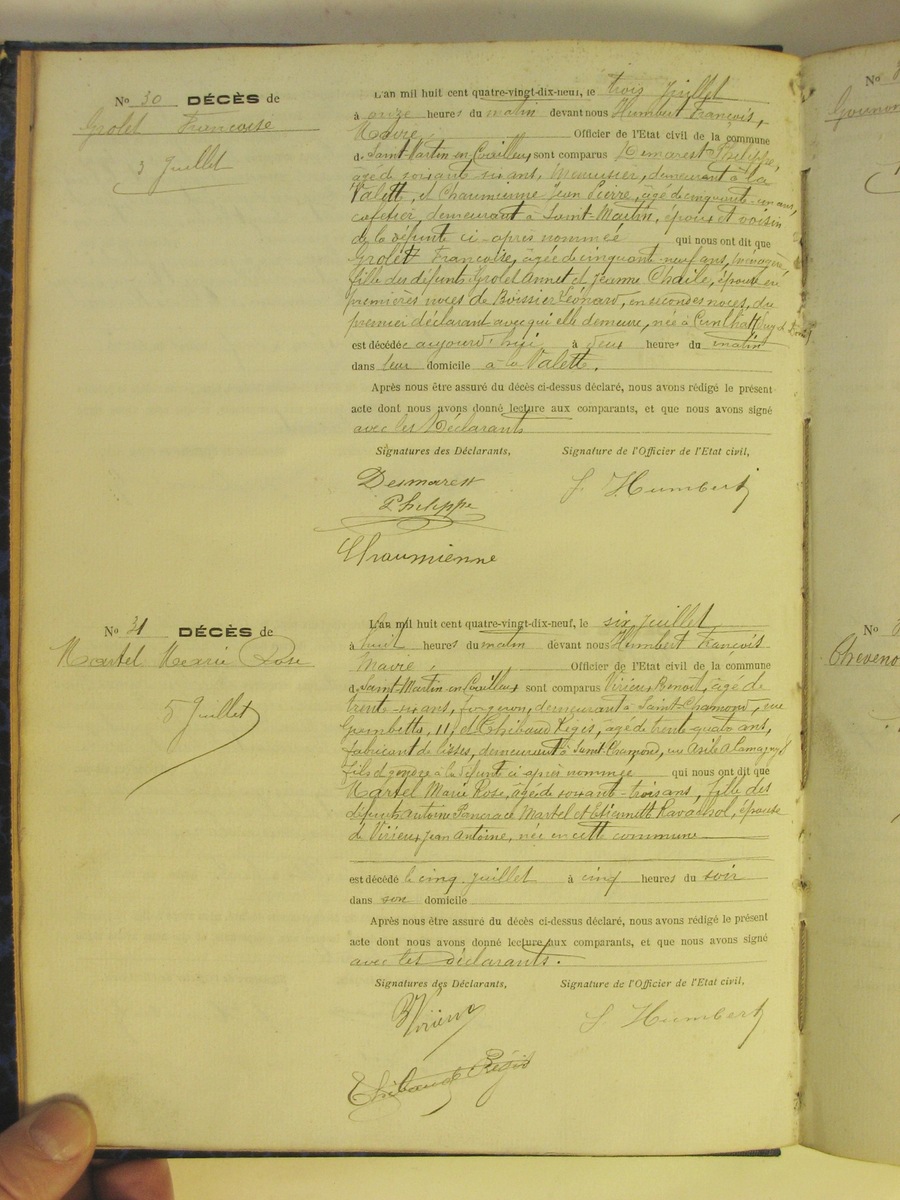 No 30 DÉCÈS de
Grolet Francoise
3 Juillet
L'an mil huit cent quatre-vingt-dix-neuf, le trois Juillet
à onze heures du matin devant nous Humbert François,
Maire, Officier de l'Etat civil de la commune
de Saint-Martin en Coailleux sont comparus Demarest Philippe,
âgé de soixante six ans, Menuisier, demeurant à la
Valette, et Chaumienne Jean Pierre, âgé de cinquante-un ans,
cafetier, demeurant à Saint-Martin, époux et voisin
de la défunte ci-après nommée qui nous ont dit que
Grolet Francoise, âgée de cinquante-neuf ans, ménagère
fille des défunts Grolet Annet et Jeanne Chaile, épouse en
premières noces de Boissier Léonard, en secondes noces, du
premier déclarant avec qui elle demeure, née à Cunlhat (Puy de Dôme)
est décédée aujourd'hui à deux heures du matin
dans leur domicile à la Valette.
Après nous être assuré du décès ci-dessus déclaré, nous avons rédigé le présent
acte dont nous avons donné lecture aux comparants, et que nous avons signé
avec les Déclarants
Signatures des Déclarants, Signature de l'Officier de l'Etat civil,
Desmarest F Humbert
Philippe
Chaumienne
No 31 DÉCÈS de
Martel Marie Rose
5 Juillet
L'an mil huit cent quatre-vingt-dix-neuf, le six Juillet
à huit heures du matin devant nous Humbert François
Maire, Officier de l'Etat civil de la commune
de Saint-Martin en Coailleux sont comparus Virieux Benoit, âgé de
trente-six ans, forgeron, demeurant à Saint-Chamond, rue
Gambetta, 11, et Thibaud Régis, âgé de trente quatre ans,
fabricant de lisses, demeurant à Saint-Chamond, rue Asile Alamagny 8
fils et gendre à la défunte ci après nommée qui nous ont dit que
Martel Marie Rose, âgée de soixante-trois ans, fille des
défunts Antoine Pancrace Martel et Etiennette Ravachol, épouse
de Virieux Jean Antoine, née en cette commune
est décédé le cinq Juillet à cinq heures du soir
dans son domicile
Après nous être assuré du décès ci-dessus déclaré, nous avons rédigé le présent
acte dont nous avons donné lecture aux comparants, et que nous avons signé
avec les déclarants.
Signatures des Déclarants, Signature de l'Officier de l'Etat civil,
B Virieux F Humbert
Thibaud Régis
No
No